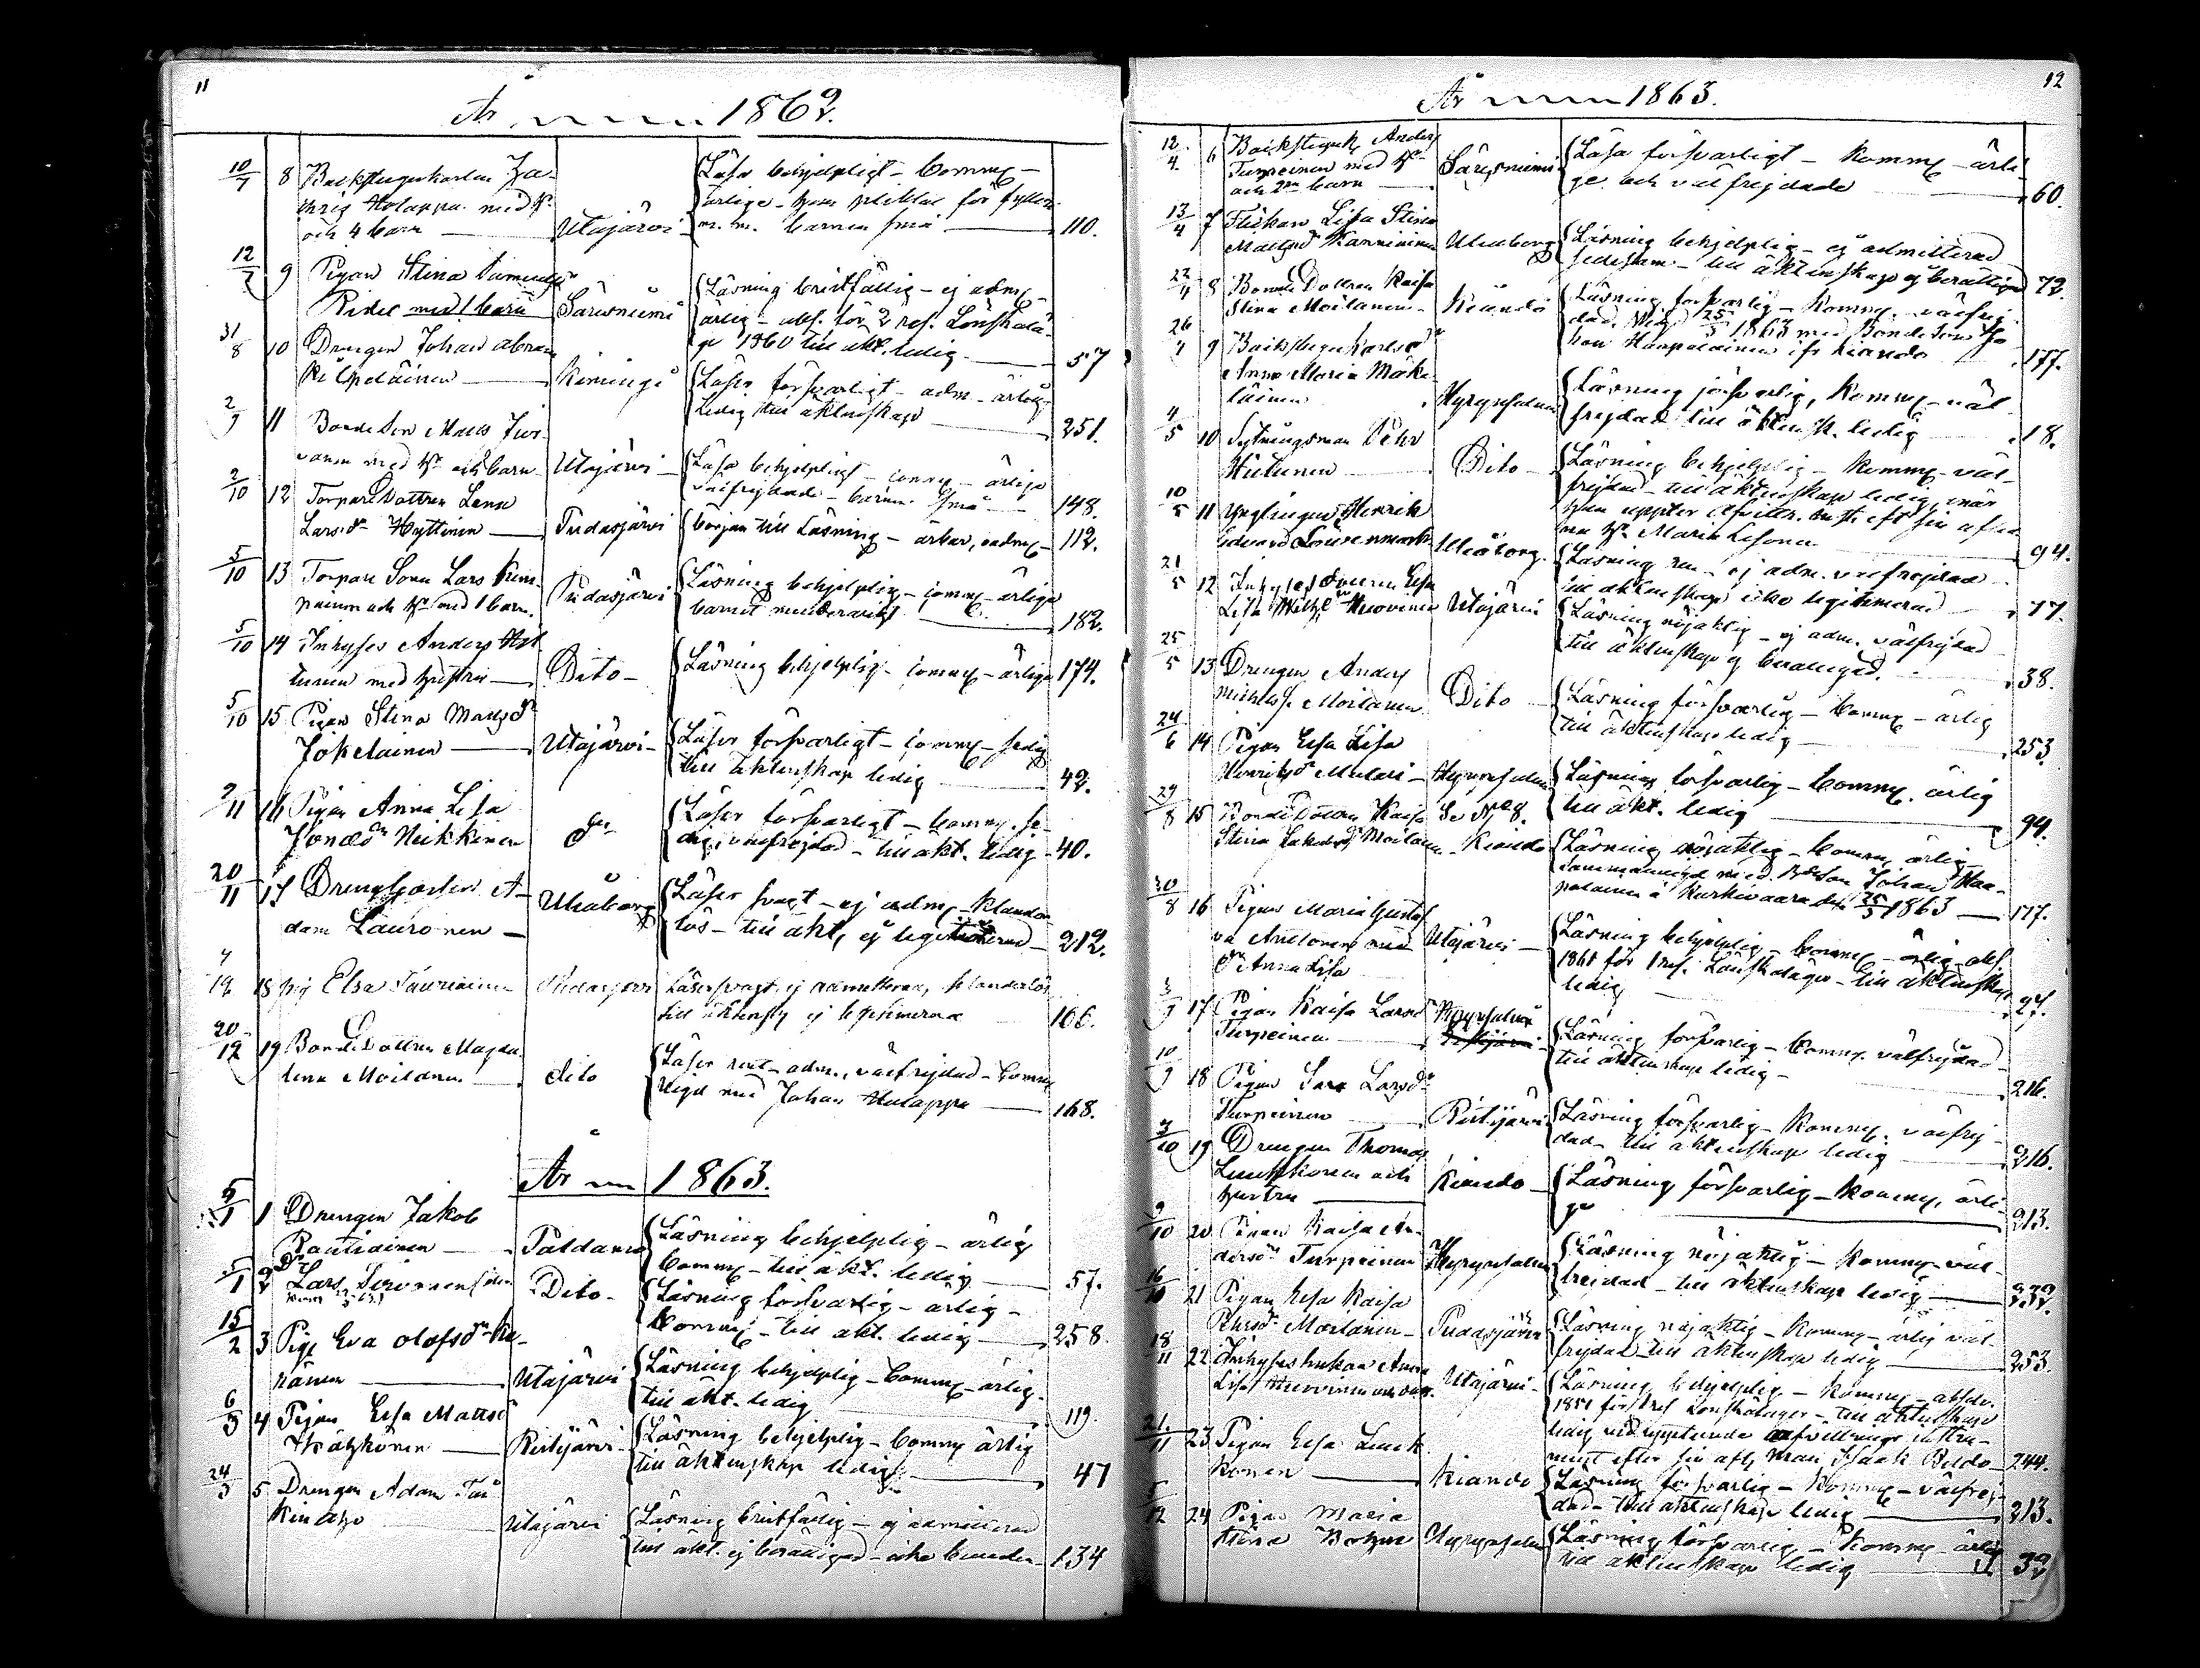 11
År 1862.
10/7 8 Backstugukarlen Za-
chris Holappa med h.
och 4 barn Utajärvi
Läsa behjelpligt - comm. -
ärlige
m.m. barnen små 110.
12/7 9 Pigan Stina
Ridel med 1 barn Säresniemi
Läsning bristfällig - ej adm. -
ärlig - abs. för 2 res. Lönskalä-
ge 1860 till äkt. ledig 57
31/8 10 Drengen Johan Abram
Kilpeläinen Kiminge
Läser försvarligt - adm. - ärlig
Ledig till äktenskap 251.
2/9 11 Bonde Son Matts Juu-
vanen med h. och barn Utajärvi
Läsa behjelpligt - comm. - ärlige
välfrejdade - barnen små 148.
2/10 12 Torpare Dottren Lena
Larsdr Hyttinen Pudasjärvi
Börjar till Läsning - ärbar, oadm. 112.
5/10 13 Torpare Sonen Lars
och h. med 1 barn. Pudasjärvi
Läsning behjelplig - comm. - ärliga
barnet minderårigt 182.
5/10 14 Inhyses Anders
med hustru Dito
Läsning behjelplig - comm. - ärliga 174.
5/10 15 Pigan Stina Mattsdr
Jokelainen Utajärvi
Läser försvarligt - comm. - sedig
till äktenskap ledig 42.
2/11 16 Pigan Anna Lisa
Jönsdr Heikkinen do
Läser försvarligt - comm. se-
dig, välfrejdad - till äkt. ledig - 40.
20/11 17 Drenggossen A-
dam Lauronen Uleåborg
Läser svagt - ej adm. - klander-
lös - till äkt. ej legitimerad 212.
4/12 18 Pig. Elsa Tauriainen Pudasjärvi
Läser svagt, ej admitterad, klanderlös
till äktensk. ej legitimerad 166.
20/12 19 Bonde Dottren Magda-
lena Moilanen dito
Läser rent - adm., välfrejdad - Comm.
Vigd med Johan Holappa 168.
År 1863.
5/1 1 Drengen Jakob
Rautiainen Paldamo
Läsning behjelplig - ärlig
Comm. - till äkt. ledig 57.
5/1 2 Dr Lars Sironen Dito
Läsning försvarlig - ärlig -
Comm. - till äkt. ledig 258.
15/2 3 Pig. Eva Olofsdr
Utajärvi
Läsning behjelplig - Comm. - ärlig.
till äkt. ledig 119.
6/3 4 Pigan Elsa Mattsd
Ristijärvi
Läsning behjelplig - Comm. ärlig
till äktenskap ledig 47
24/3 5 Drengen Adam
Utajärvi
Läsning bristfällig - ej admitterad
till äkt. ej berättigad 134
12
År 1863.
12/4 6 Backstuguk. Anders
Turpeinen med h.
och barn Säresniemi
Läsa försvarligt - Komm. - ärli-
ge och välfrejdade 60.
13/4 7 Flickan Lisa Stina
Mattsdr Karvinen Uleåborg
Läsning behjelplig - ej admitterad
sedesam - till äktenskap ej berättigad 72.
22/4 8 Bonde Dottren Kaisa
Stina Moilanen Kiando
Läsning försvarlig - Komm. - välfrej-
dad. Vigd 25/5 1863 med Bonde Son Jo-
han Haapalainen ifr. Kiando 177.
26/4 9 Backstugukarlsdr
Anna Maria Mäke-
läinen Hyrynsalmi
Läsning försvarlig, Komm. - väl-
frejdad till äktensk. ledig 18.
4/5 10 Sytningsman Pehr
Dito
Läsning behjelplig - Komm. - väl-
frejdad - till äktenskap ledig, när
han uppter. Afvittr. inst. eft. sin afled-
na h. Maria Lesonen 94.
10/5 11 Ynglingen Henrik
Edvard Uleåborg.
Läsning ren - ej adm. välfrejdad
till äktenskap icke legitimerad 77.
21/5 12 Inhyses Dottren Elsa
Utajärvi
Läsning nöjaktig - ej adm. välfrejdad
till äktenskap ej berättigad. 38.
25/5 13 Drengen Anders
Michelss. Moilanen Dito
Läsning försvarlig - Comm. - ärlig
till äktenskap ledig 253
24/6 14 Pigan Elsa Lisa
Henriksdr Mulari Hyrynsalmi
Läsning försvarlig - Comm. ärlig
till äkt. ledig 94.
29/8 15 Bonde Dottren Kaisa Se No 8.
Stina Jakobsd Moilanen Kiando
Läsning nöjaktig - Comm. ärlig
Sammanvigd med Bdeson Johan Haa-
palainen i Kurkivaara den 25/5 1863 177.
30/8 16 Pigan Maria Gusta-
va Anttonen med
dr Anna Lisa Utajärvi
Läsning behjelplig - Comm. - ärlig - abs.
1861 för 1 res. Lönskaläger - till äktenskap
ledig 27.
3/9 17 Pigan Kaisa Larsd
Turpeinen Hyrynsalmi
Läsning försvarlig - Comm. välfrejdad
till äktenskap ledig 216.
10/9 18 Pigan Sara Larsdr
Turpeinen Ristijärvi
Läsning försvarlig - Komm. välfrej-
dad - till äktenskap ledig 216.
3/10 19 Drengen Thomas
Leinskonen och
hustru Kiando
Läsning försvarlig - Komm. ärli-
ge 213.
9/10 20 Pigan Kaisa An-
dersdr Turpeinen Hyrynsalmi
Läsning nöjaktig - Komm. - väl-
frejdad - till äktenskap ledig 232.
16/10 21 Pigan Elsa Kaisa
Pehrsdr Moilanen Pudasjärvi
Läsning nöjaktig - Komm. - ärlig väl-
frejdad till äktenskap ledig 253.
18/11 22 Inhyses Enkan Anna
Lisa Utajärvi
Läsning behjelplig - Komm. - abslv.
1851 för 1 res. Lönskaläger - till äktenskap
ledig vid uppteende afvittrings instru-
ment efter sin afl. man Isaak 244.
21/11 23 Pigan Elsa Leinsk-
konen Kiando
Läsning försvarlig - Komm. - välfrej-
dad - till äktenskap ledig 213.
5/12 24 Pigan Maria
Stina Hyrynsalmi
Läsning försvarlig - Komm. - ärlig
till äktenskap ledig 39